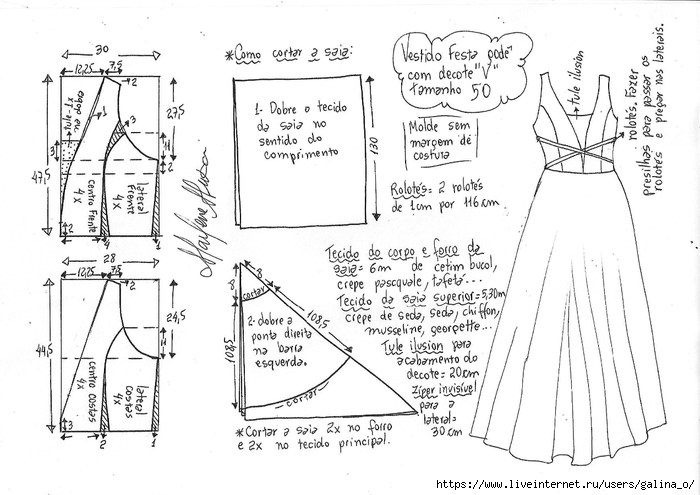 30
12,25
7,5
2
1
3
dobra no
tule-1x
3
27,5
11
2
47,5
centro Frente
4x
lateral
Frente
4x
2
4
1
28
12,25
7,5
2
24,5
11
44,5
centro costas
4x
lateral
Costas
4x
3
2
1
Marlene Mukai
*Como cortar a saia:
1- Dobre o tecido
da saia no
sentido do
comprimento
130
8
8
cortar
108,5
108,5
2- dobre a
ponta direita
na barra
esquerda.
cortar
*Cortar a saia 2x no forro
e 2x no tecido principal.
Vestido Festa podê
com decote "V"
tamanho 50
Molde sem
margem de
costura
Rolotés= 2 rolotés
de 1cm por 116 cm
Tecido do corpo e forro da
saia= 6m de cetim bucol,
crepe pasquale, tafetá...
Tecido da saia superior= 5,30m
crepe de seda, seda, chiffon,
musseline, georgette...
Tule ilusion para
acabamento do
decote= 20cm
Zíper invisível
para a
lateral=
30cm
tule ilusion
rolotés. Fazer
presilhas para passar os
rolotés e pregar nas laterais.
https://www.liveinternet.ru/users/galina_o/